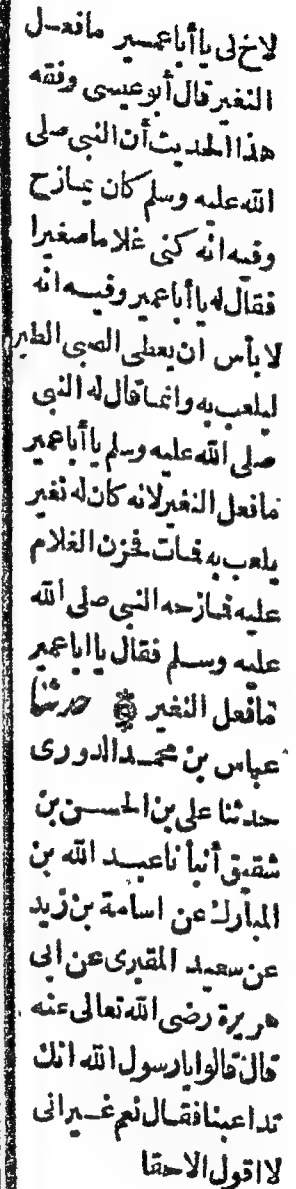 لاخ لى يا أبا عمير ما فعل
النغير قال أبو عيسى وفقه
هذا الحديث أن النبى صلى
الله عليه وسلم كان يمازح
وفيه انه كنى غلاما صغيرا
فقال له يا أبا عمير وفيه انه
لا بأس ان يعطى الصبى الطير
ليلعب به وانما قال له النبى
صلى الله عليه وسلم يا أبا عمير
ما فعل النغير لانه كان له نغير
يلعب به فمات فحزن الغلام
عليه فمازحه النبى صلى الله
عليه وسلم فقال يا ابا عمير
ما فعل النغير حدثنا
عباس بن محمد الدورى
حدثنا على بن الحسن بن
شقيق أنبأنا عبد الله بن
المبارك عن اسامة بن زيد
عن سعيد المقبرى عن ابى
هريرة رضى الله تعالى عنه
قال قالوا يا رسول الله انك
تداعبنا فقال نعم غير انى
لا اقول الا حقا